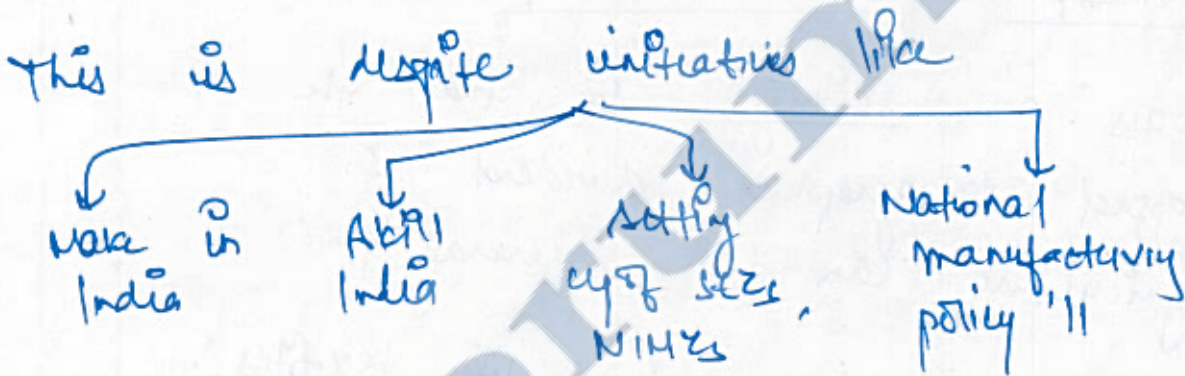 This is despite initiatives like
Make in India
Skill India
Setting up of SEZs, NIMZs
National manufacturing policy '11